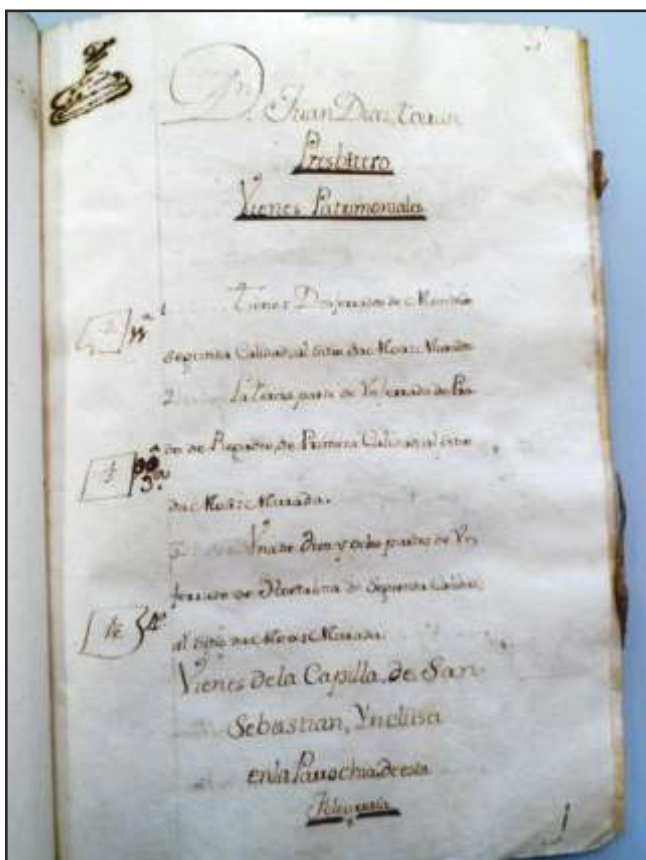 Dn. Juan Diaz
Presbitero
Vienes Patrimoniales
Tiene Dos ferrados de
segunda Calidad, al sitio das
2 La tercia parte de Un ferrado de Pra
do de Regadio, de Primera Calidad, al sitio
das Murada.
Una de Diez y ocho partes de Un
ferrado de Hortaliza de Segunda Calidad,
al sitio das Murada.
Vienes dela Capilla, de San
Sebastian, Ynclusa
enla Parrochia, de esta
Feligresia